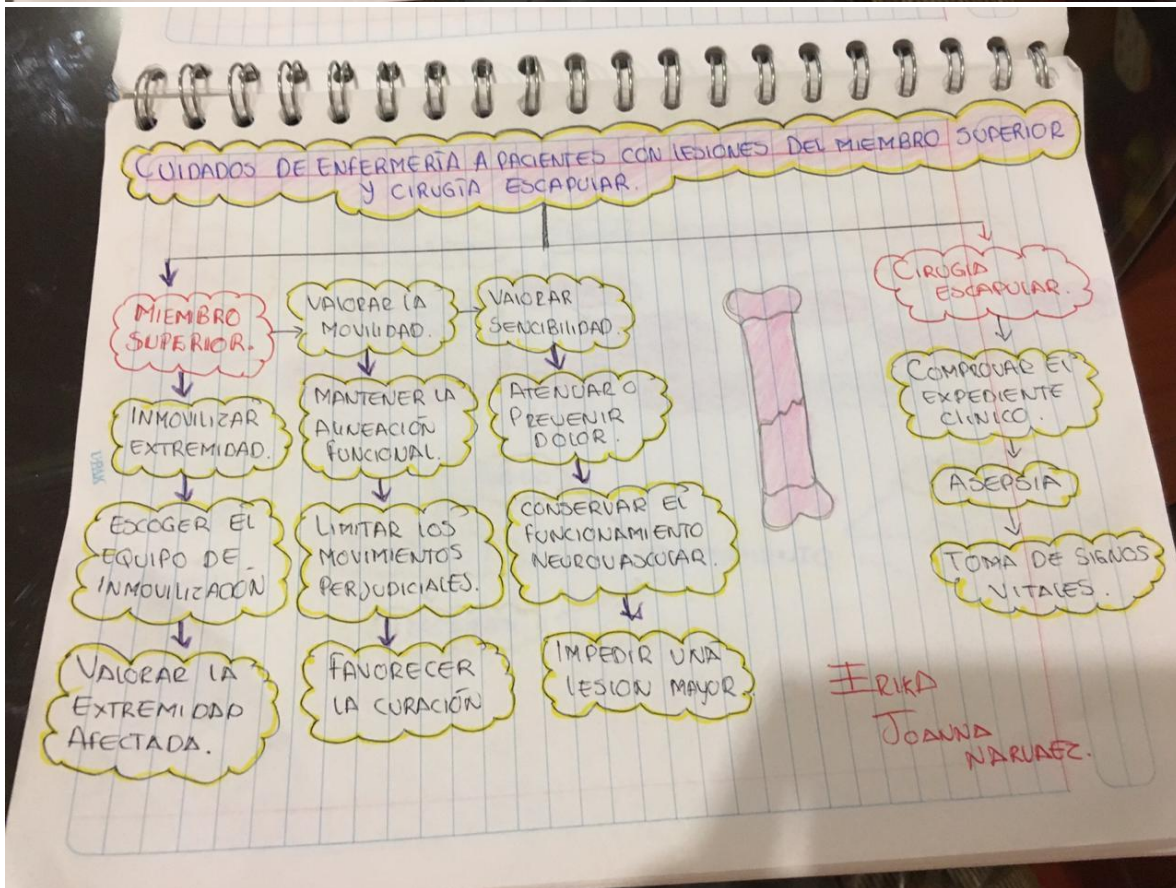 CUIDADOS DE ENFERMERÍA A PACIENTES CON LESIONES DEL MIEMBRO SUPERIOR
Y CIRUGÍA ESCAPULAR.
MIEMBRO
SUPERIOR.
INMOVILIZAR
EXTREMIDAD.
ESCOGER EL
EQUIPO DE
INMOVILIZACIÓN
VALORAR LA
EXTREMIDAD
AFECTADA.
VALORAR LA
MOVILIDAD.
MANTENER LA
ALINEACIÓN
FUNCIONAL.
LIMITAR LOS
MOVIMIENTOS
PERJUDICIALES.
FAVORECER
LA CURACIÓN
VALORAR
SENCIBILIDAD.
ATENUAR O
PREVENIR
DOLOR.
CONSERVAR EL
FUNCIONAMIENTO
NEUROVASCULAR.
IMPEDIR UNA
LESION MAYOR.
CIRUGIA
ESCAPULAR.
COMPROVAR EL
EXPEDIENTE
CLINICO.
ASEPSIA
TOMA DE SIGNOS
VITALES.
ERIKA
JOANNA
NARVAEZ.